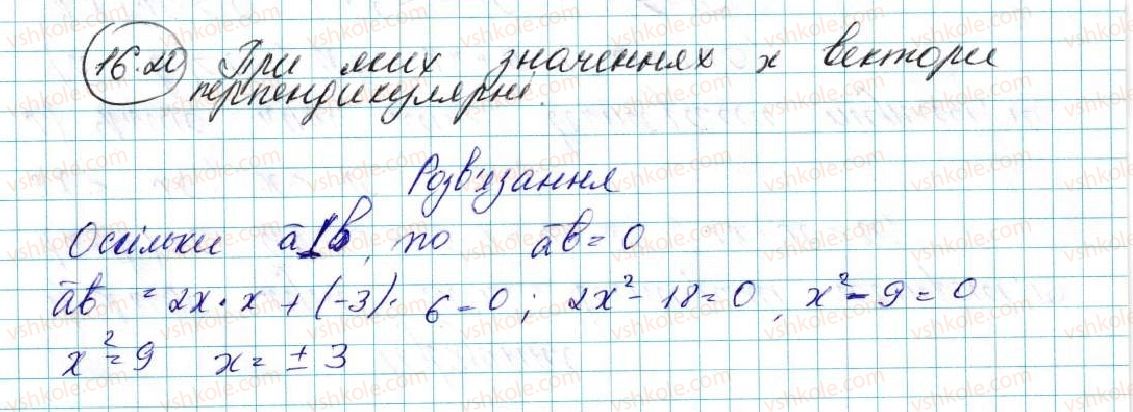 16.20 При яких значеннях x вектори
перпендикулярні.
Розв'язання
Оскільки a̅⊥b̅, то a̅b̅ = 0
a̅b̅ = 2x·x + (-3)·6 = 0; 2x² - 18 = 0, x² - 9 = 0
x² = 9 x = ± 3